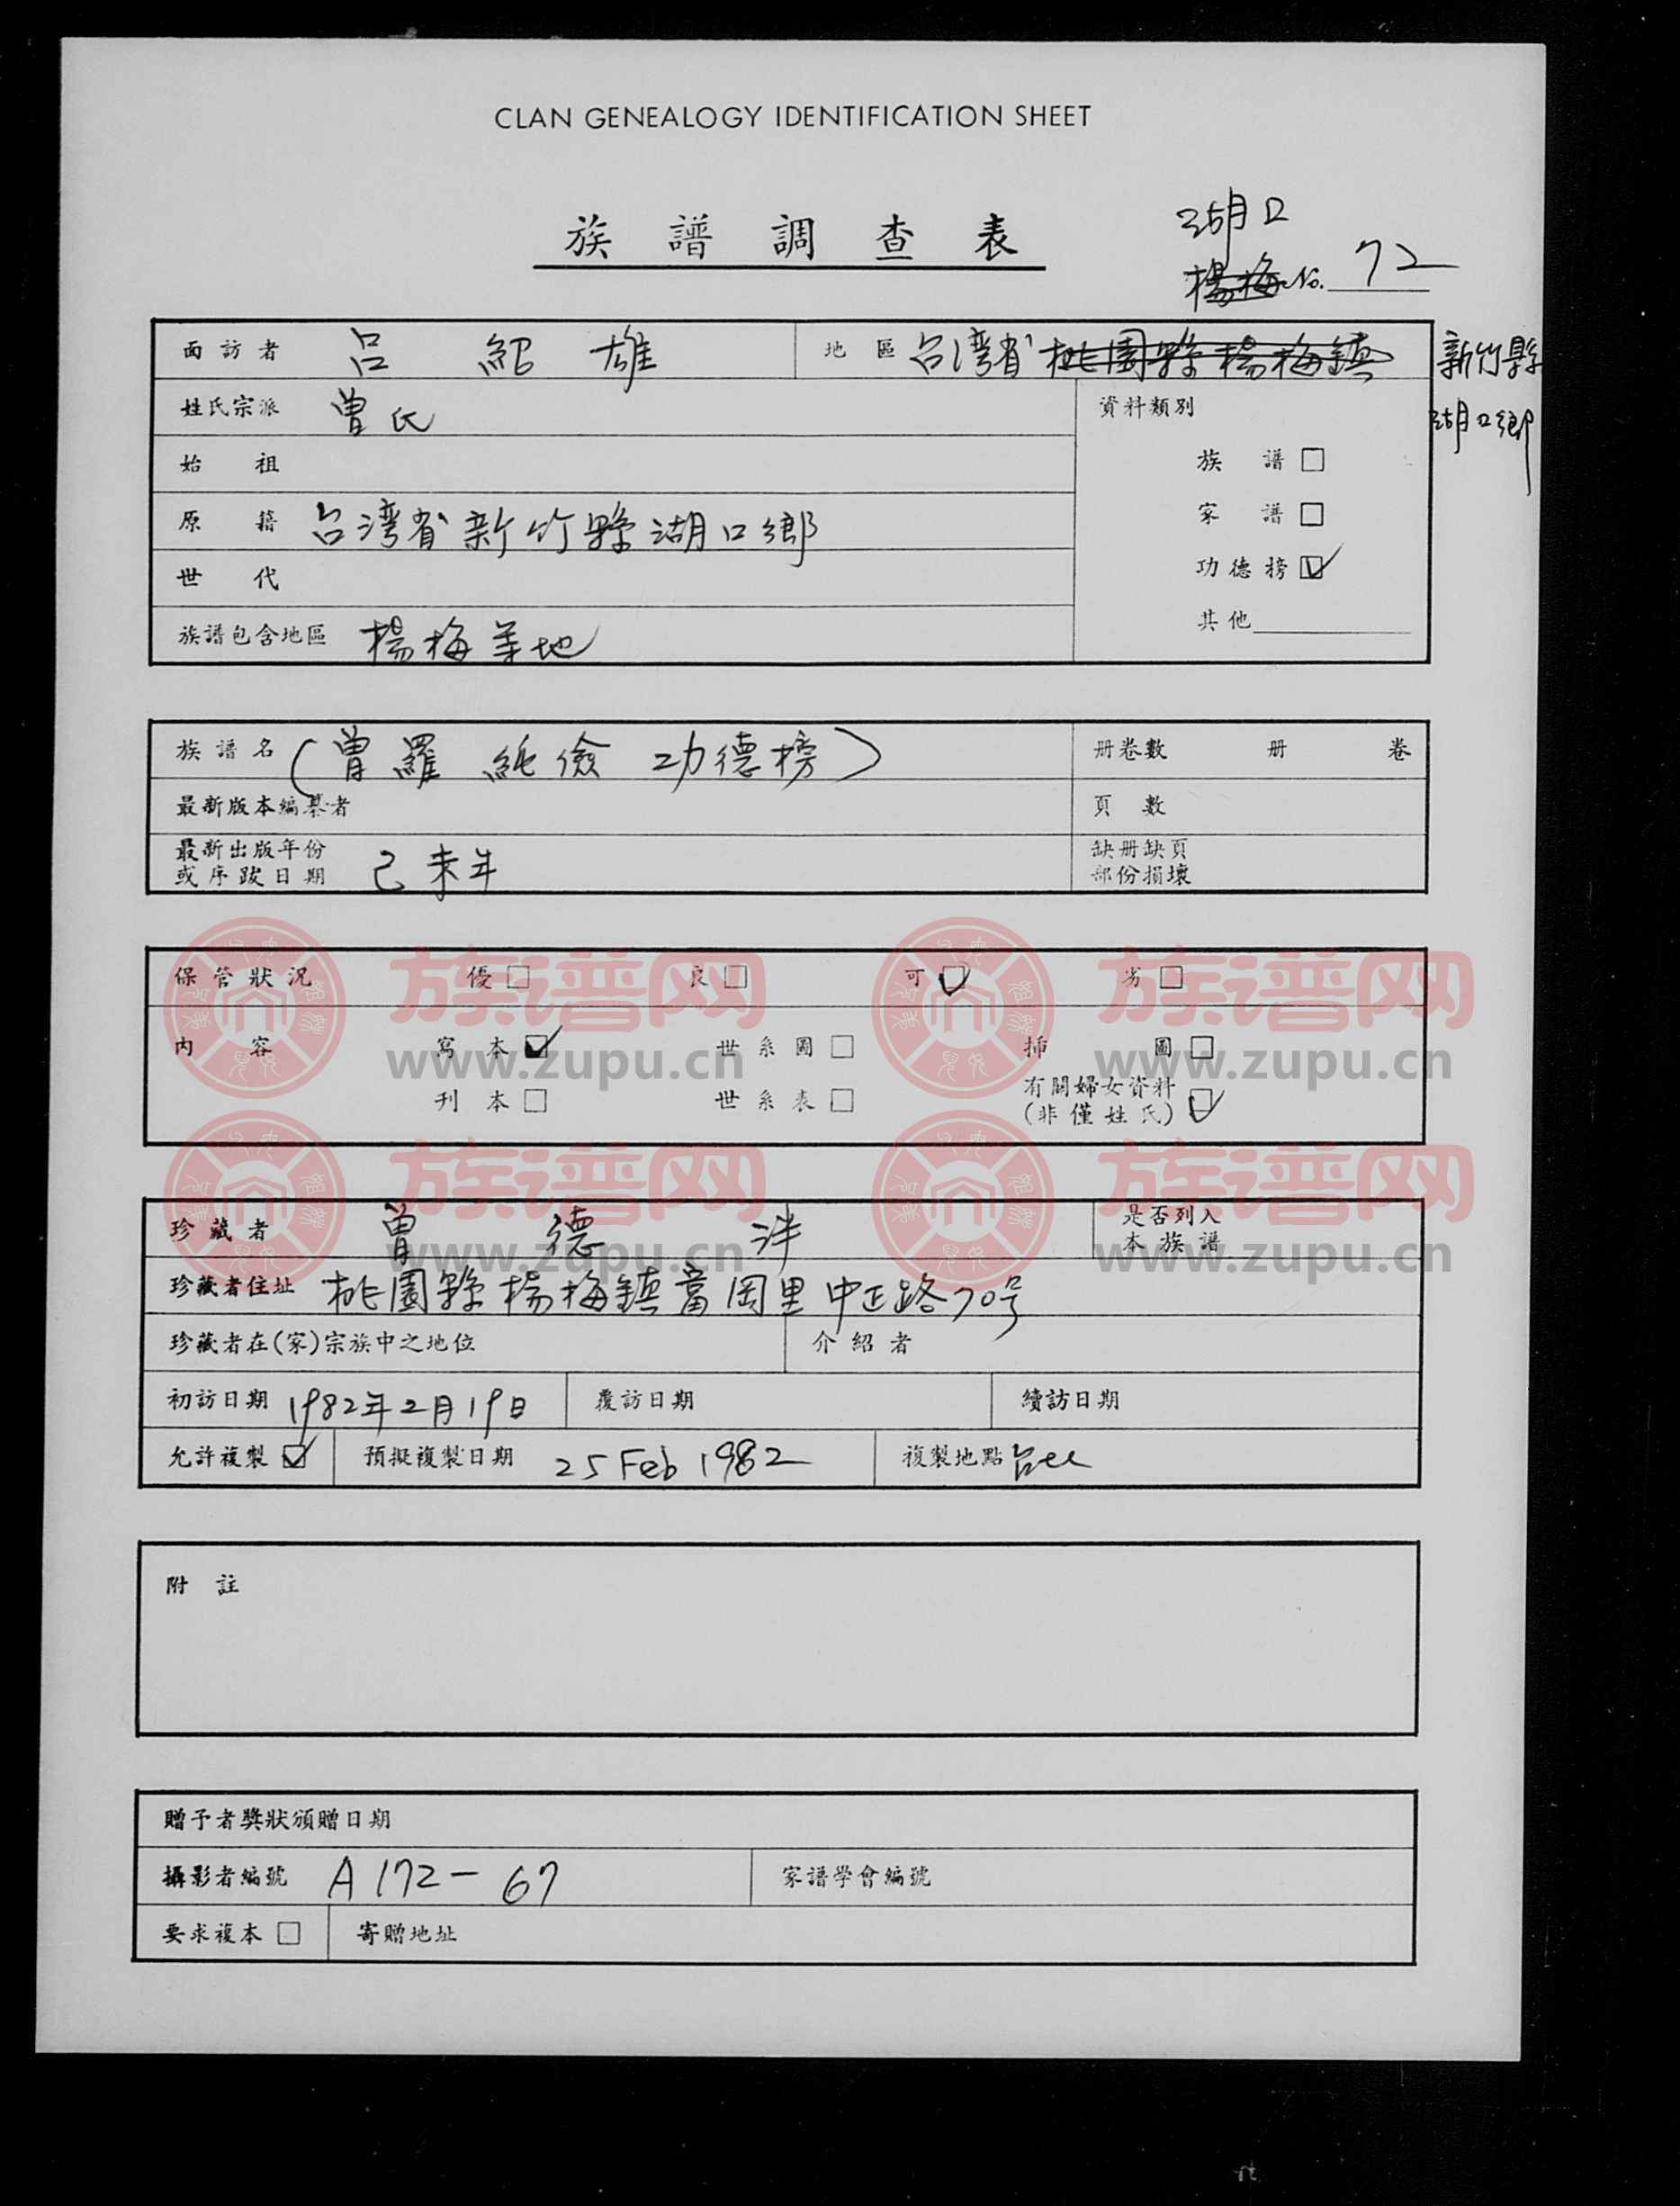 CLAN GENEALOGY IDENTIFICATION SHEET
族譜調查表
湖口
楊梅 No. 72
面訪者 呂紹雄 地區 台湾省桃園縣楊梅鎮 新竹縣
湖口鄉
姓氏宗派 曾氏
資料類別
族譜□
始祖
原籍 台湾省新竹縣湖口鄉
家譜□
世代
功德榜☑
族譜包含地區 楊梅等地
其他
族譜名 (曾羅純儉功德榜) 册卷數 册 卷
最新版本編纂者 頁數
最新出版年份
或序跋日期 己未年
缺册缺頁
部份損壞
保管狀況 優□ 良□ 可☑ 劣□
内容 寫本☑ 世系圖□ 插圖□
刊本□ 世系表□ 有關婦女資料
(非僅姓氏)☑
珍藏者 曾德泮 是否列入
本族譜
珍藏者住址 桃園縣楊梅鎮富岡里中正路70号
珍藏者在(家)宗族中之地位 介紹者
初訪日期 1982年2月19日 覆訪日期 續訪日期
允許複製☑ 預擬複製日期 25 Feb 1982 複製地點
附註
贈予者獎狀頒贈日期
攝影者編號 A172-67 家譜學會編號
要求複本□ 寄贈地址
族谱网
www.zupu.cn
族谱网
www.zupu.cn
族谱网
www.zupu.cn
族谱网
www.zupu.cn